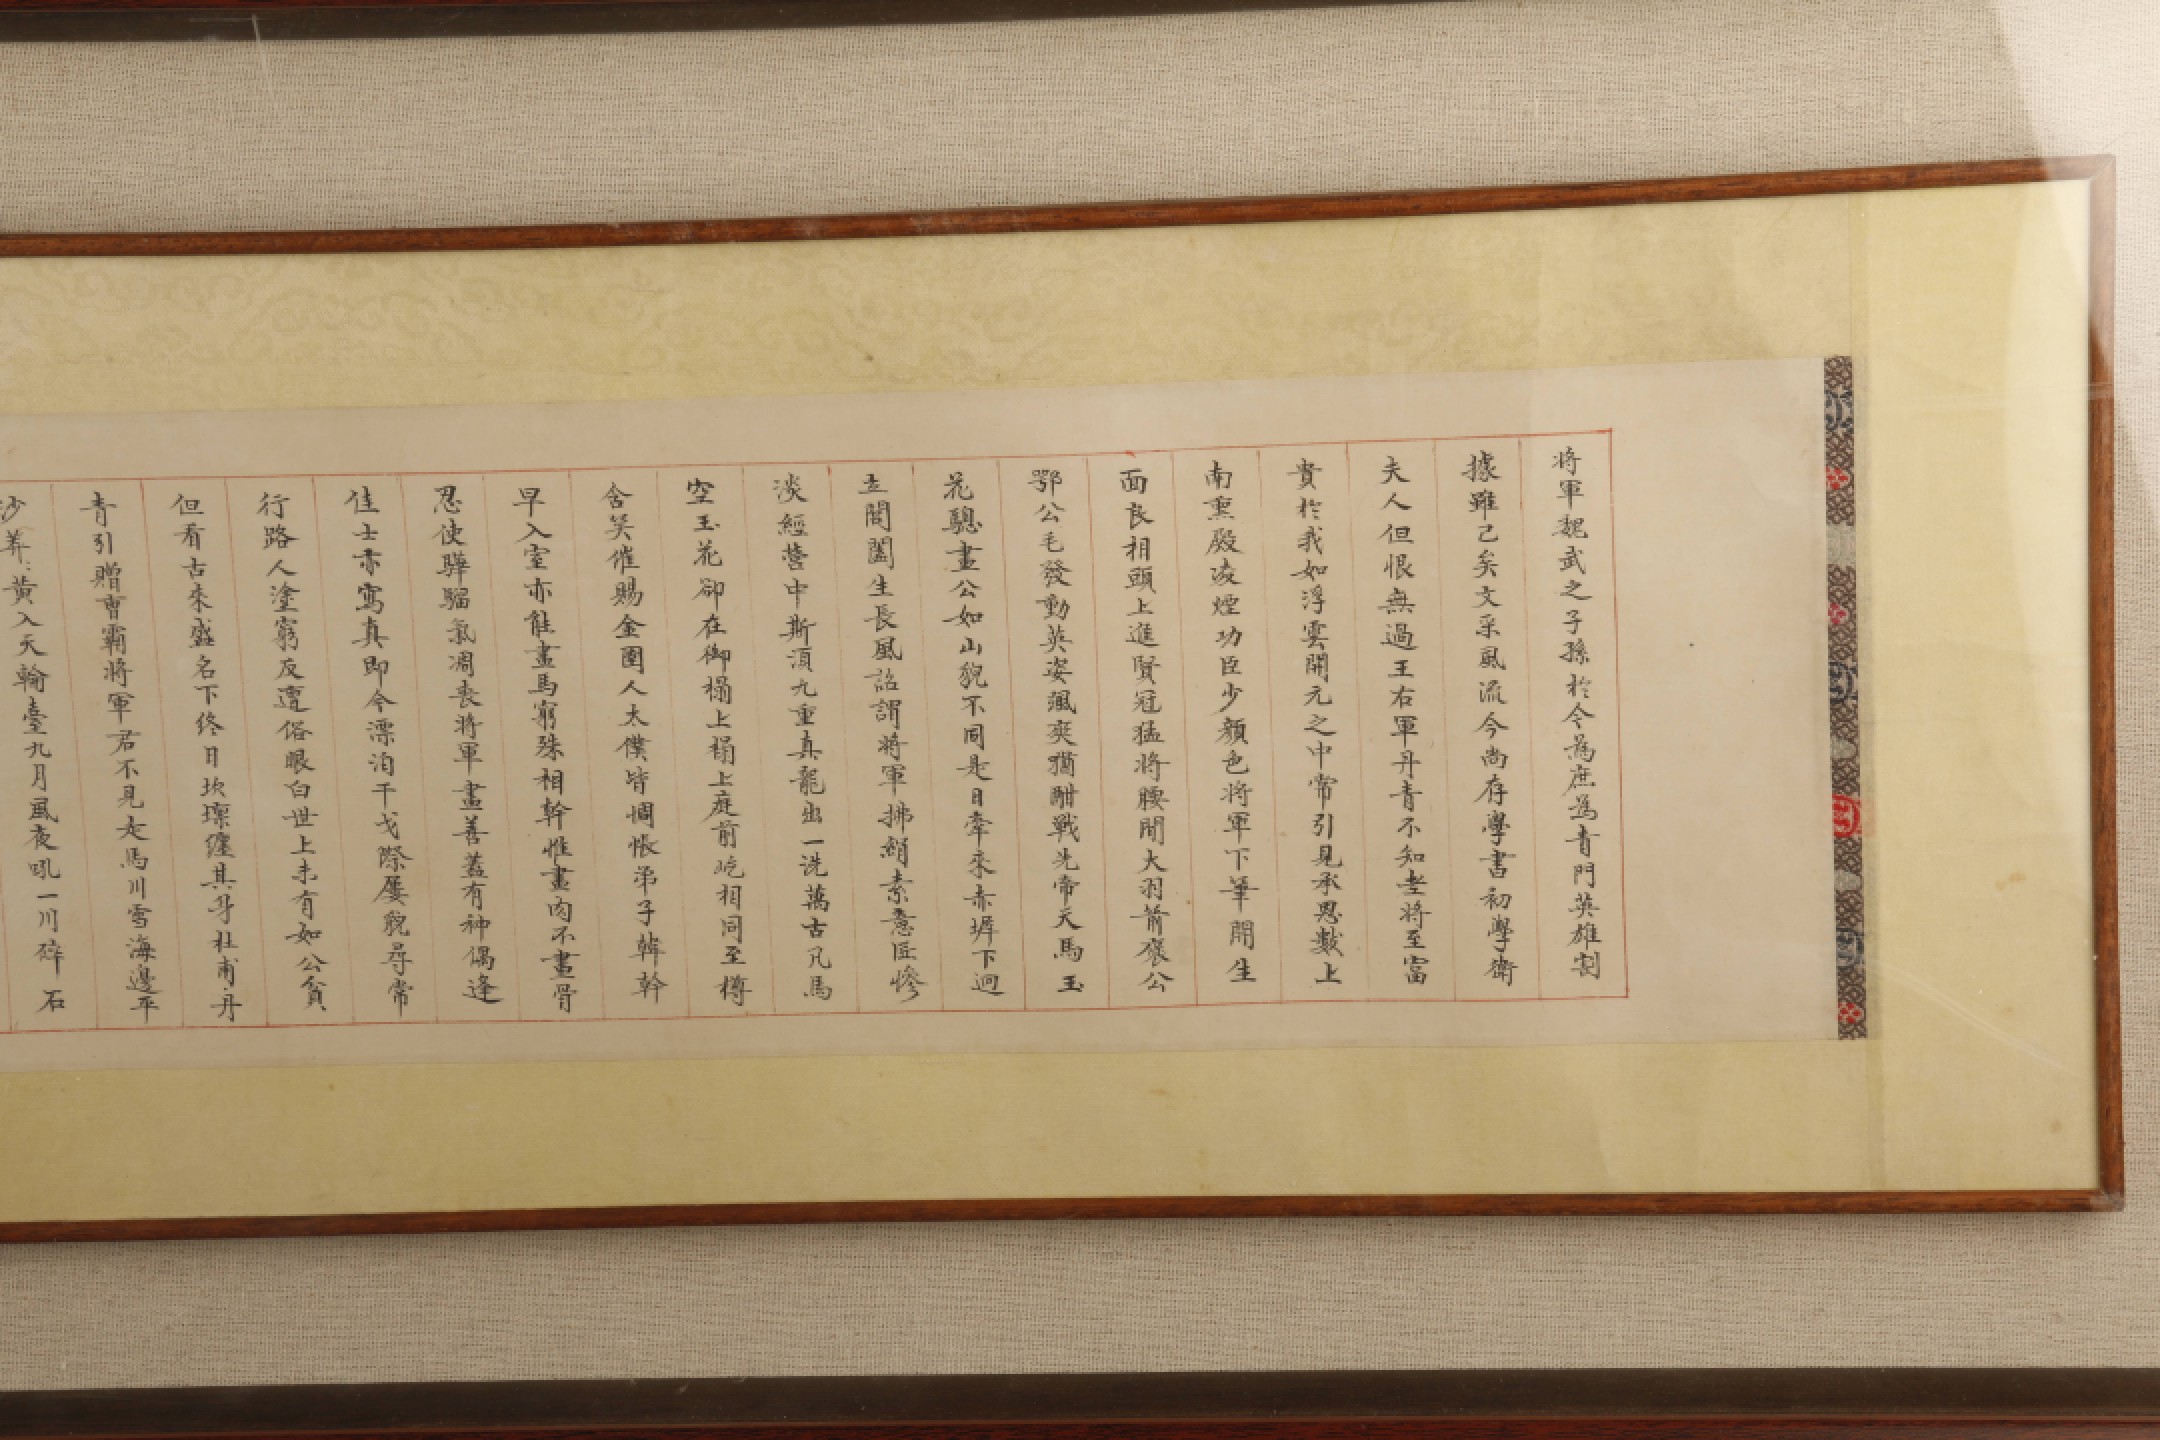 將軍魏武之子孫於今為庶為青門英雄割
據雖已矣文采風流今尚存學書初學衛
夫人但恨無過王右軍丹青不知老將至富
貴於我如浮雲開元之中常引見承恩數上
南熏殿凌煙功臣少顏色將軍下筆開生
面良相頭上進賢冠猛將腰間大羽箭褒公
鄂公毛發動英姿颯爽猶酣戰先帝天馬玉
花驄畫公如山貌不同是日牽來赤墀下迥
立閶闔生長風詔謂將軍拂絹素意匠慘
淡經營中斯須九重真龍出一洗萬古凡馬
空玉花卻在御榻上榻上庭前屹相同至樽
含笑催賜金圉人太僕皆惆悵弟子韓幹
早入室亦能畫馬窮殊相幹惟畫肉不畫骨
忍使驊騮氣凋喪將軍畫善蓋有神偶逢
佳士亦寫真即今漂泊干戈際屢貌尋常
行路人塗窮反遭俗眼白世上未有如公貧
但看古來盛名下終日坎壈纏其身杜甫丹
青引贈曹霸將軍君不見走馬川雪海邊平
沙莽:黃入天輪臺九月風夜吼一川碎石